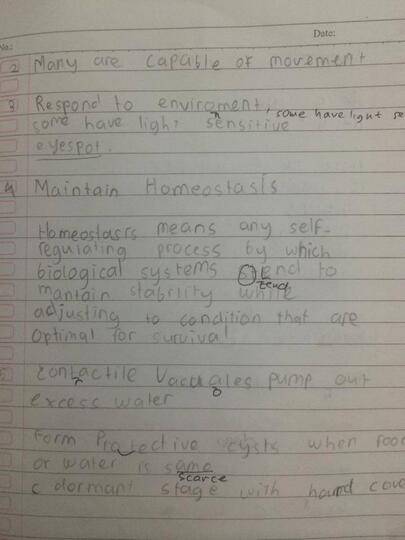 No.:
Date:
2 Many are capable of movement
3 Respond to enviroment, some have light se
some have light sensitive
n
eyespot.
4 Maintain Homeostasis
Homeostasis means any self-
regulating process by which
biological systems tend to
tend
mantain stability while
adjusting to condition that are
optimal for survival
5 contactile Vacuales pump out
r o
excess water
Form Protective cysts when food
or water is same
scarce
c dormant stage with hard cove